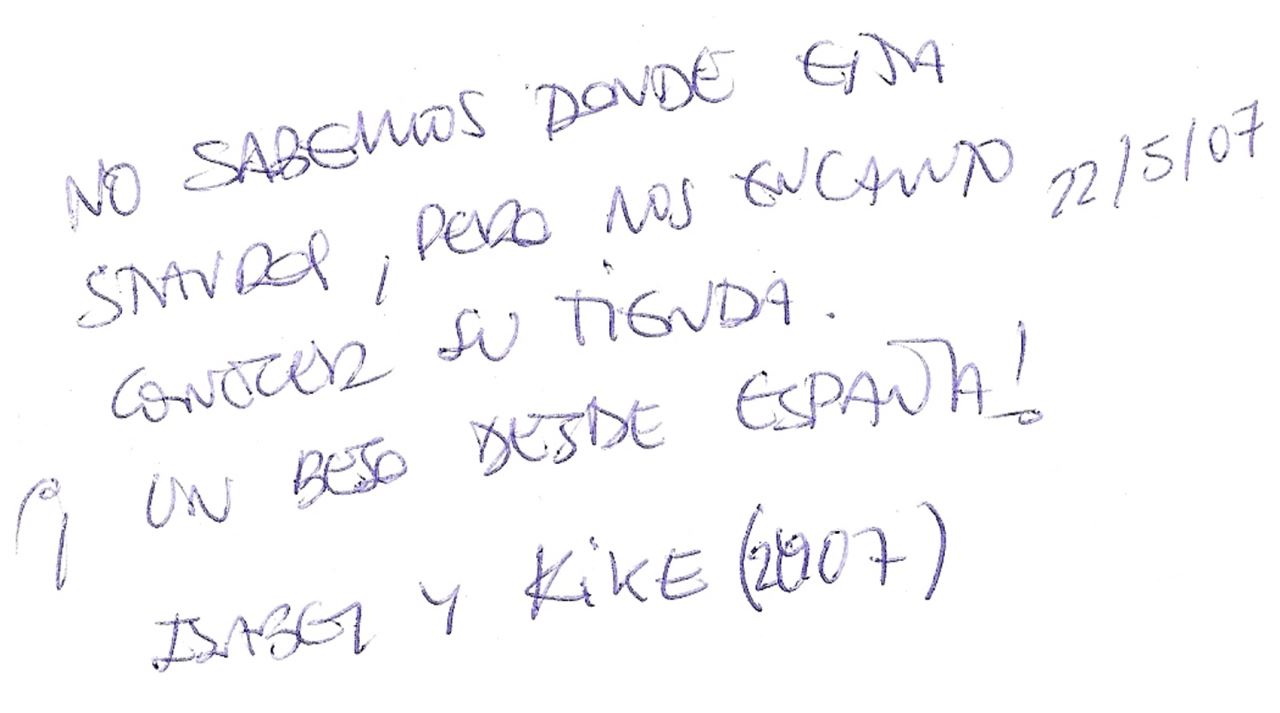 NO SABEMOS DONDE ESTA
STAVROS, PERO NOS ENCANTO 22/5/07
CONOCER SU TIENDA.
UN BESO DESDE ESPAÑA!
ISABEL Y KIKE (2007)